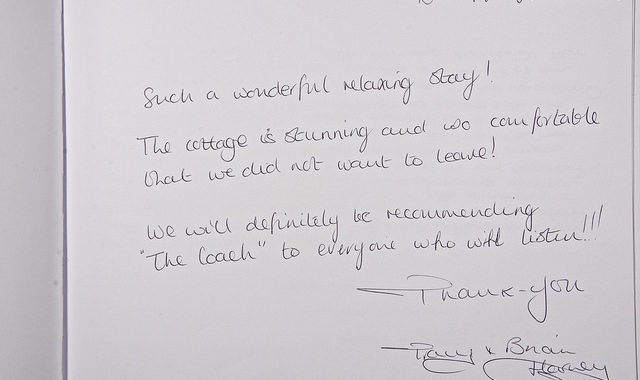 Such a wonderful relaxing stay!
The cottage is stunning and so comfortable
that we did not want to leave!
We will definitely be recommending
"The Coach" to everyone who will listen!!!
Thank-you
Tracy & Brian
Harvey